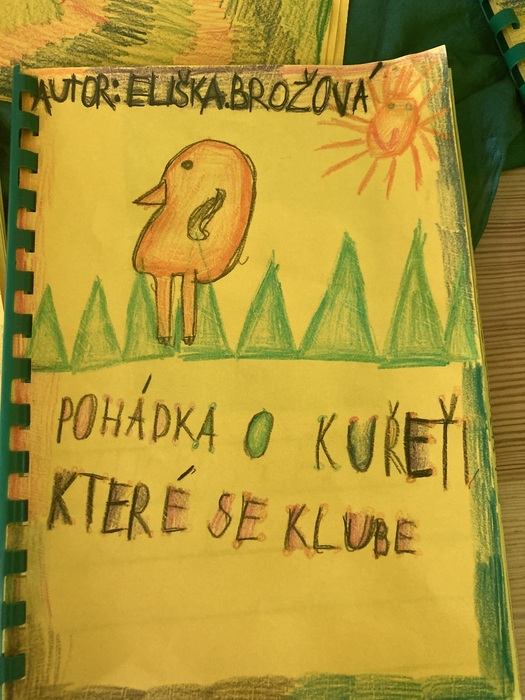 AUTOR: ELIŠKA.BROŽOVÁ
POHÁDKA O KUŘETI
KTERÉ SE KLUBE